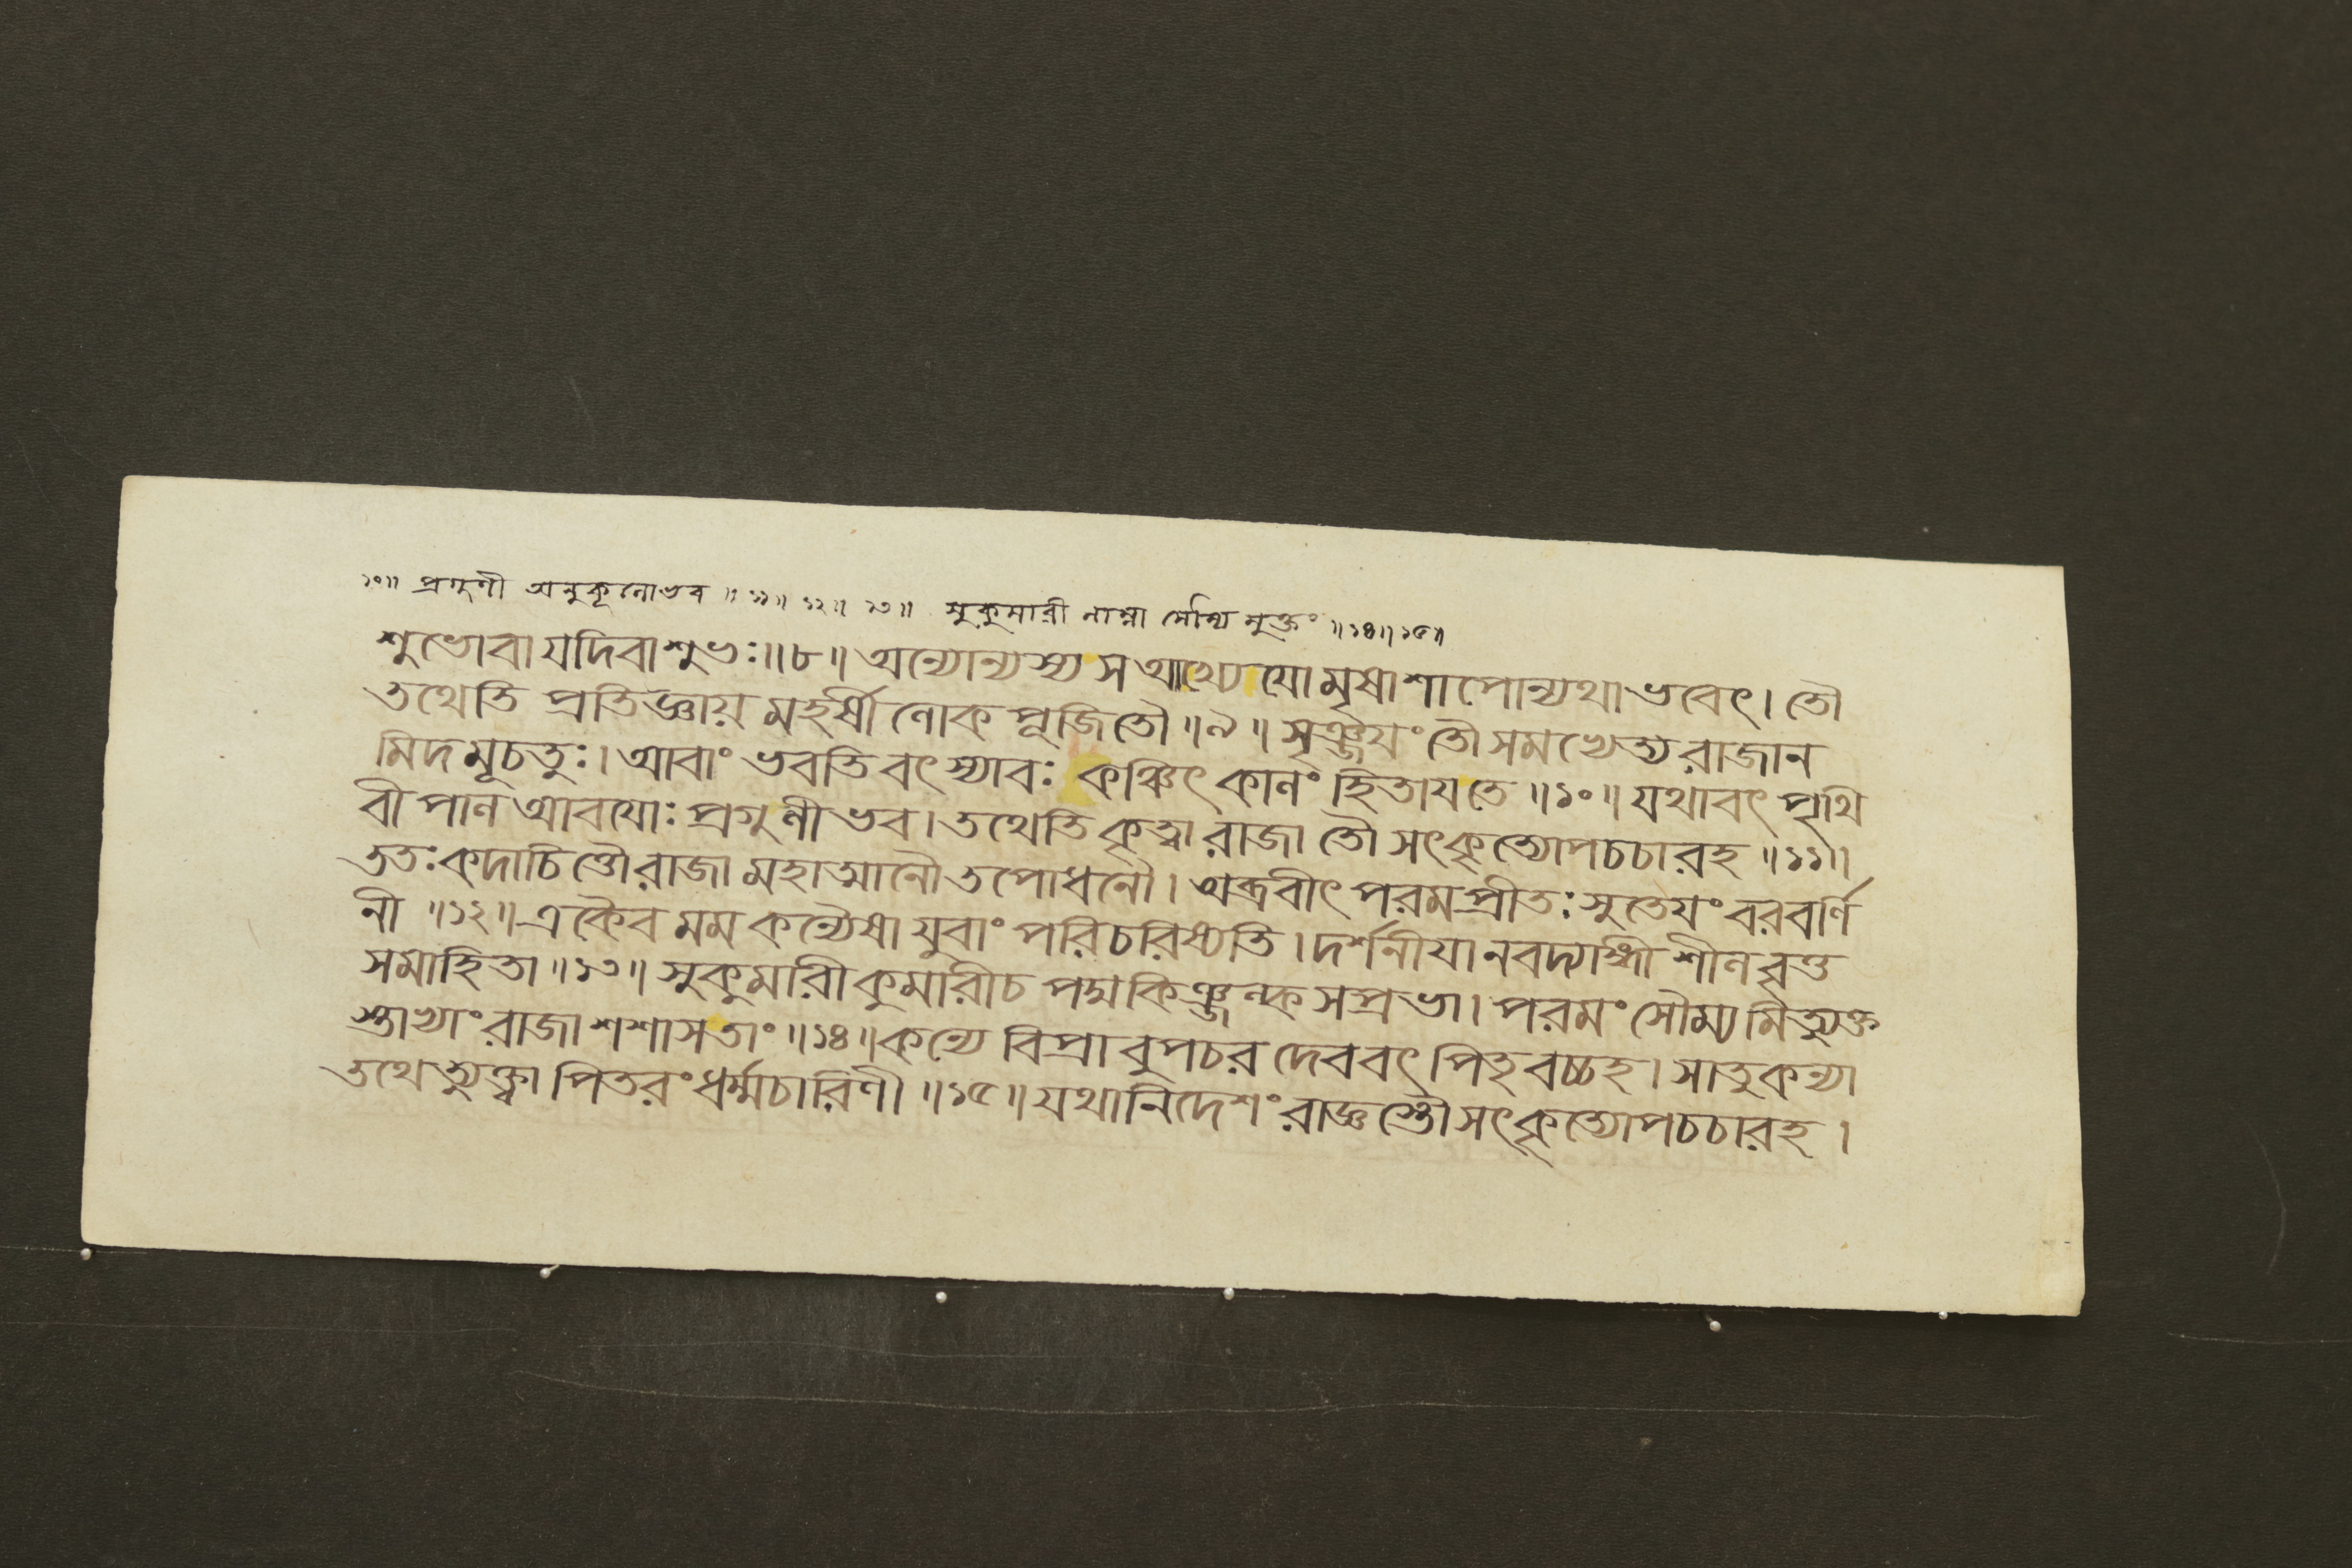 ১০॥ প্রগুণী অনুকূলোভব ॥ ১১॥ ১২॥ ১৩॥ সুকুমারী নাম্না মুক্তং ॥১৪॥১৫॥
শুভোবা যদিবাশুভঃ॥৮॥ অন্যোন্যস্য স আখ্যেযো মৃষাশাপোন্যথাভবেৎ। তৌ
তথেতি প্রতিজ্ঞায় মহর্ষী লোক পূজিতৌ ॥৯॥ সৃঞ্জযং তৌ সমভ্যেত্য রাজান
মিদমূচতুঃ। আবাং ভবতি বৎস্যাবঃ কঞ্চিৎ কালং হিতাযতে ॥১০॥ যথাবৎ পৃথি
বী পাল আবযোঃ প্রগুণীভব। তথেতি কৃত্বা রাজা তৌ সৎকৃত্যোপচচারহ ॥১১॥
ততঃ কদাচিত্তৌ রাজা মহাত্মানৌ তপোধনৌ। অব্রবীৎ পরমপ্রীতঃ সুতেযং বরবর্ণি
নী ॥১২॥ একৈব মম কন্যৈষা যুবাং পরিচরিষ্যতি। দর্শনীযানবদ্যাঙ্গী শীলবৃত্ত
সমাহিতা ॥১৩॥ সুকুমারী কুমারীচ পদ্মকিঞ্জল্ক সপ্রভা। পরমং সৌম্য মিত্যুক্ত
স্তাভ্যাং রাজা শশাসতাং ॥১৪॥ কন্যে বিপ্রাবুপচর দেববৎ পিতৃবচ্চহ। সাতুকন্যা
তথেত্যুক্ত্বা পিতরং ধর্ম্মচারিণী ॥১৫॥ যথানিদেশং রাজ্ঞস্তৌ সৎকৃত্যোপচচারহ।